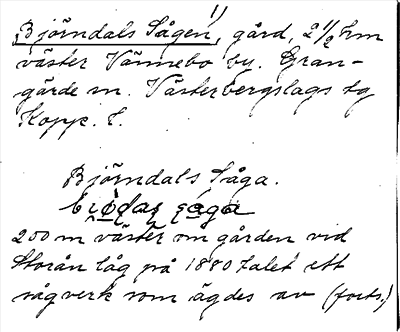 1)
Björndals Sågen, gård, 2 1/2 km
väster Vännebo by. Gran-
gärde sn. Västerbergslags tg
Kopp. l.
Björndals Såga.
200 m väster om gården vid
Storån låg på 1880 talet ett
sågverk som ägdes av (forts.)